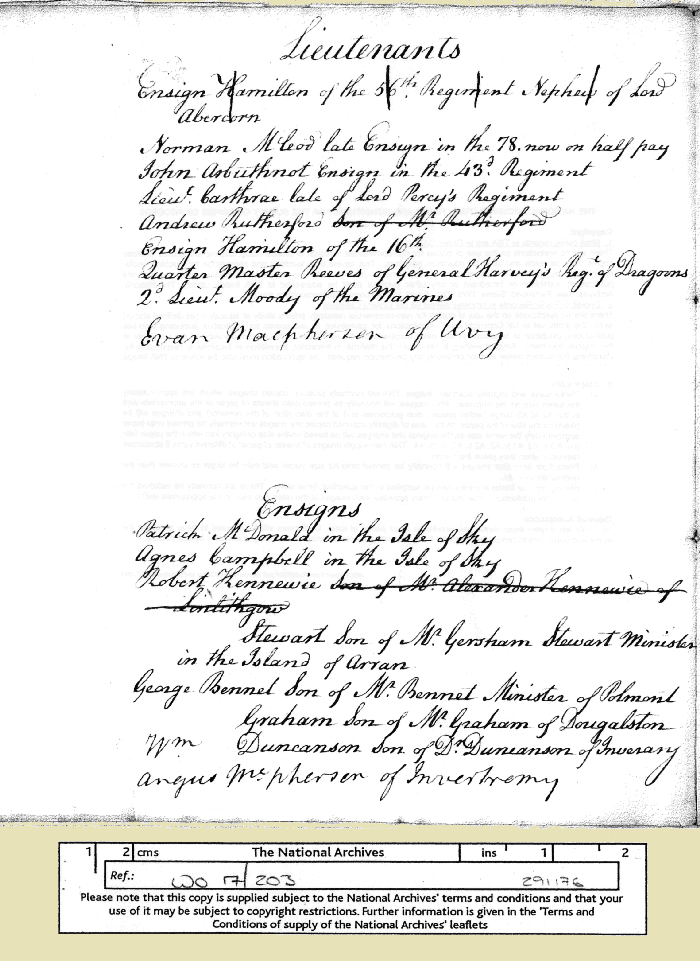 Lieutenants
Ensign Hamilton of the 56th Regiment Nephew of Lord
Abercorn
Norman McLeod late Ensign in the 78. now on half pay
John Arbuthnot Ensign in the 43d Regiment
Lieut. Carthrae late of Lord Percy's Regiment
Andrew Rutherford Son of Mr Rutherford
Ensign Hamilton of the 16th
Quarter Master Reeves of General Harvey's Regt of Dragoons
2d Lieut. Moody of the Marines
Evan Macpherson of Uvy
Ensigns
Patrick McDonald in the Isle of Sky
Agnes Campbell in the Isle of Sky
Robert Kennewie Son of Mr Alexander Kennewie of
Linlithgow
Stewart Son of Mr Gersham Stewart Minister
in the Island of Arran
George Bennet Son of Mr Bennet Minister of Polmont
Graham Son of Mr Graham of Dougalston
Wm Duncanson Son of Dr Duncanson of Inverary
Angus Mcpherson of Invertromy
1 2 cms The National Archives ins 1 2
Ref.: WO 17/203 291176
Please note that this copy is supplied subject to the National Archives' terms and conditions and that your
use of it may be subject to copyright restrictions. Further information is given in the 'Terms and
Conditions of supply of the National Archives' leaflets